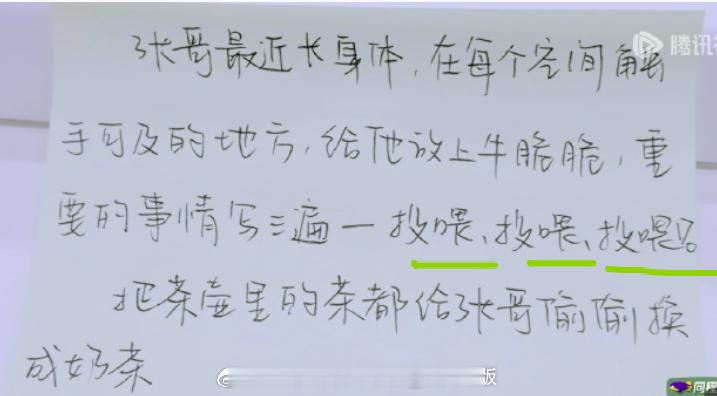 腾讯
张哥最近长身体，在每个空间触
手可及的地方，给他放上牛脆脆，重
要的事情写三遍一投喂、投喂、投喂！
把茶壶里的茶都给张哥偷偷换
成奶茶
版
同程